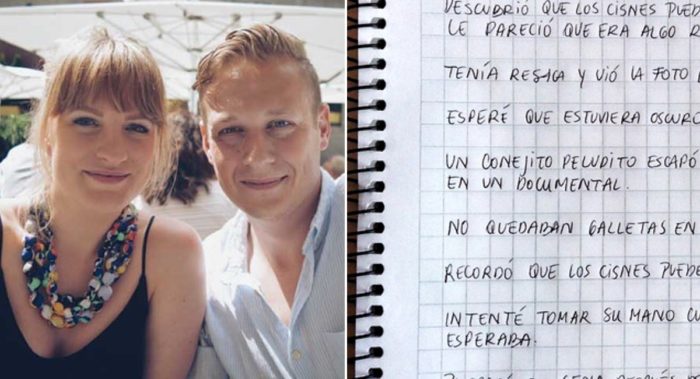 DESCUBRIÓ QUE LOS CISNES PUED
LE PARECIÓ QUE ERA ALGO R
TENÍA RESACA Y VIÓ LA FOTO
ESPERÉ QUE ESTUVIERA OSCURO
UN CONEJITO PELUDITO ESCAPÓ
EN UN DOCUMENTAL.
NO QUEDABAN GALLETAS EN
RECORDÓ QUE LOS CISNES PUEDE
INTENTÉ TOMAR SU MANO CU
ESPERABA.